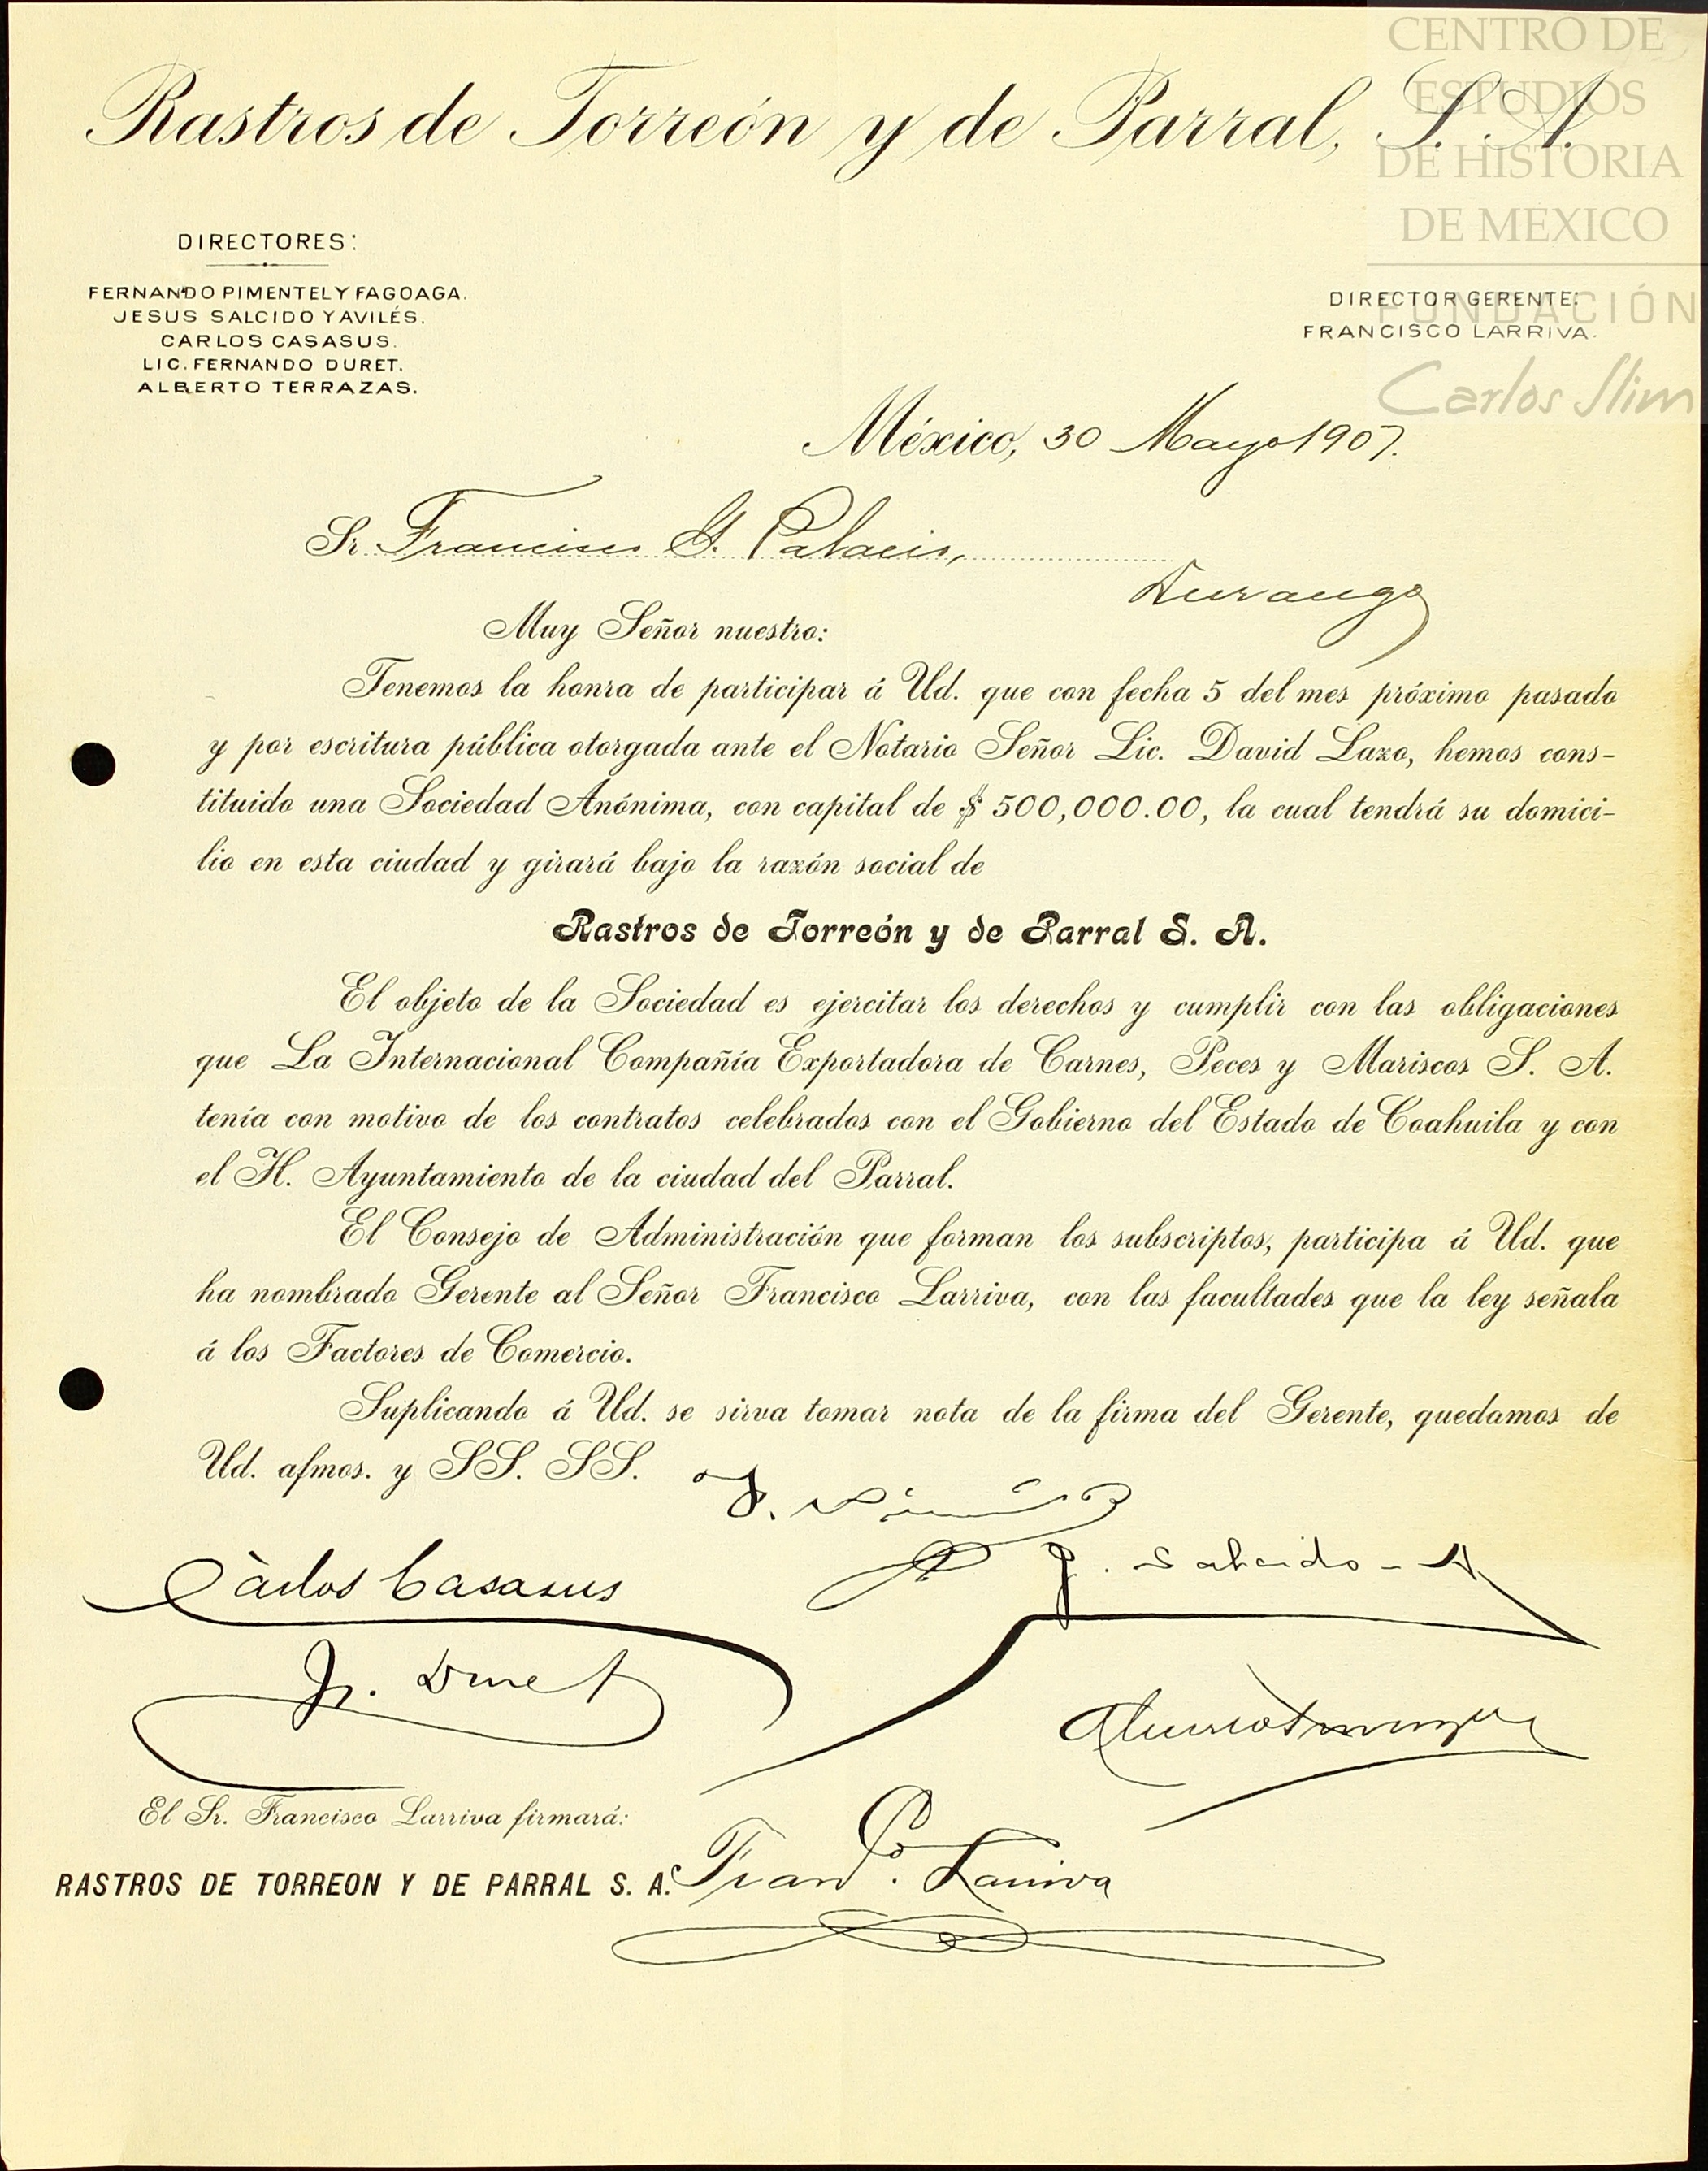 Rastros de Torreón y de Parral, S. A.
CENTRO DE
ESTUDIOS
DE HISTORIA
DE MEXICO
FUNDACIÓN
Carlos Slim
DIRECTORES:
FERNANDO PIMENTEL Y FAGOAGA.
JESUS SALCIDO Y AVILÉS.
CARLOS CASASUS.
LIC. FERNANDO DURET.
ALBERTO TERRAZAS.
DIRECTOR GERENTE:
FRANCISCO LARRIVA.
México, 30 Mayo 1907.
Sr. Francisco G. Palacio,
Durango
Muy Señor nuestro:
Tenemos la honra de participar á Ud. que con fecha 5 del mes próximo pasado
y por escritura pública otorgada ante el Notario Señor Lic. David Lazo, hemos cons-
tituido una Sociedad Anónima, con capital de $ 500,000.00, la cual tendrá su domici-
lio en esta ciudad y girará bajo la razón social de
Rastros de Torreón y de Parral S. A.
El objeto de la Sociedad es ejercitar los derechos y cumplir con las obligaciones
que La Internacional Compañía Exportadora de Carnes, Peces y Mariscos S. A.
tenía con motivo de los contratos celebrados con el Gobierno del Estado de Coahuila y con
el H. Ayuntamiento de la ciudad del Parral.
El Consejo de Administración que forman los subscriptos, participa á Ud. que
ha nombrado Gerente al Señor Francisco Larriva, con las facultades que la ley señala
á los Factores de Comercio.
Suplicando á Ud. se sirva tomar nota de la firma del Gerente, quedamos de
Ud. afmos. y SS. SS.
Carlos Casasus
J. Salcido - A
F. Duret
El Sr. Francisco Larriva firmará:
RASTROS DE TORREON Y DE PARRAL S. A.
Franco. Larriva